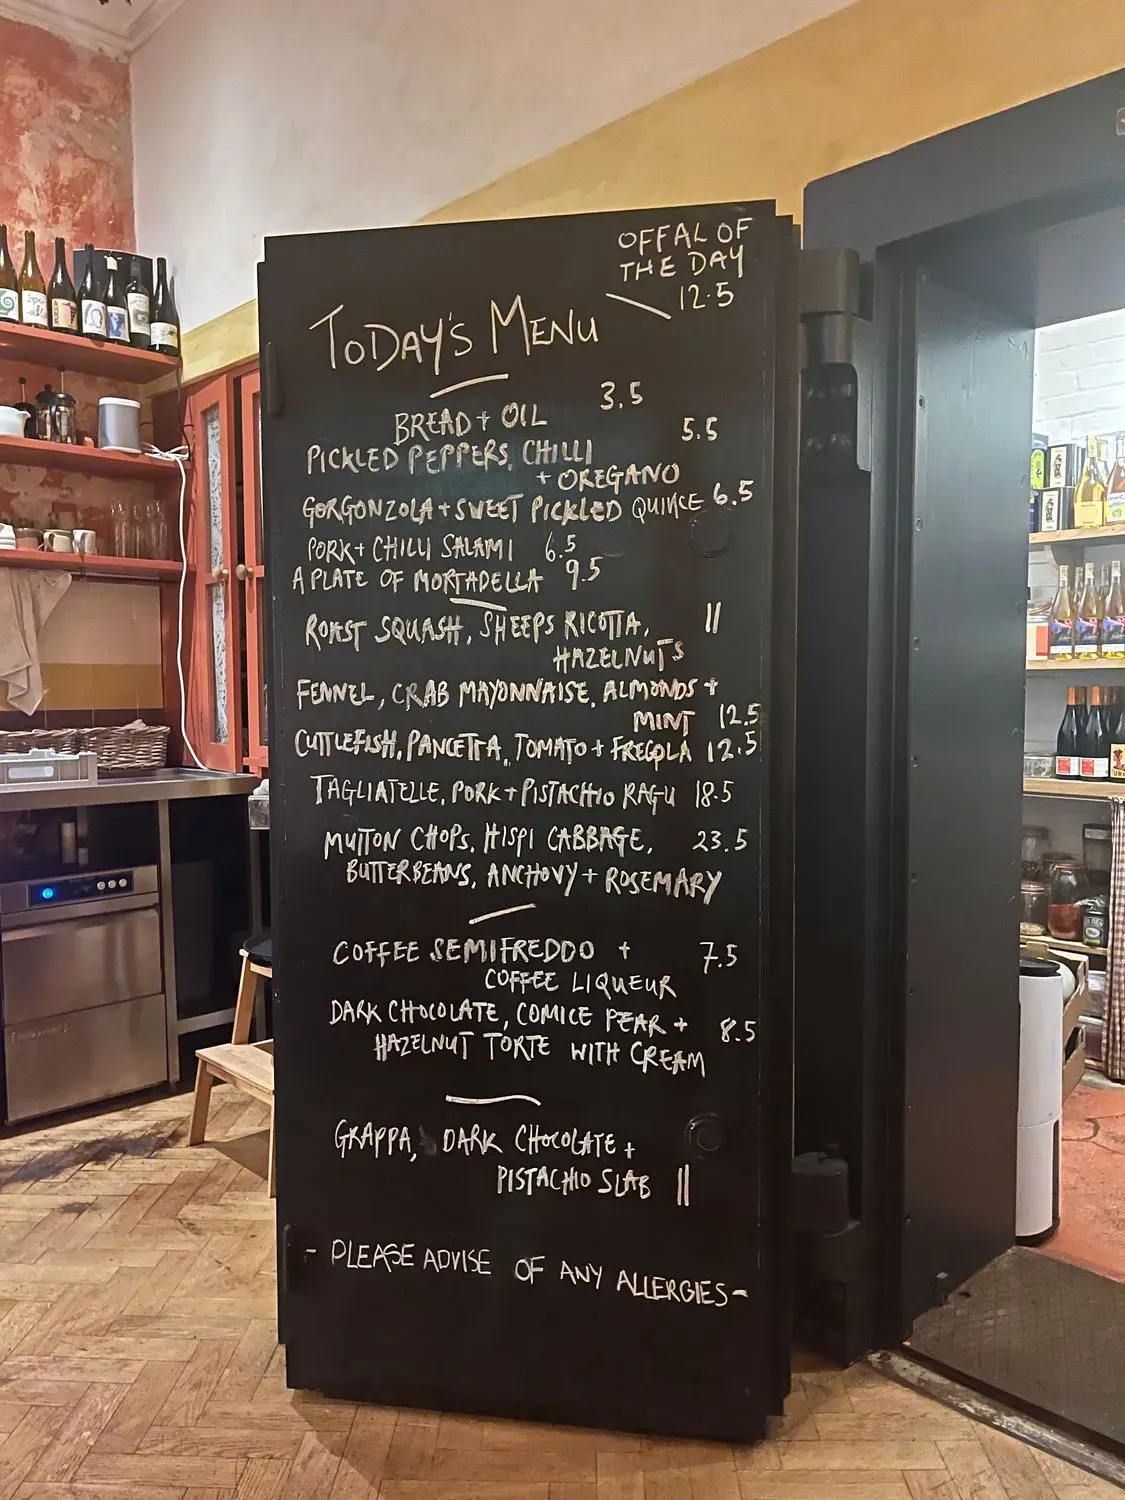 OFFAL OF
THE DAY
12.5
TODAY'S MENU
BREAD + OIL 3.5
PICKLED PEPPERS, CHILLI 5.5
+ OREGANO
GORGONZOLA + SWEET PICKLED QUINCE 6.5
PORK + CHILLI SALAMI 6.5
A PLATE OF MORTADELLA 9.5
ROAST SQUASH, SHEEPS RICOTTA, 11
HAZELNUTS
FENNEL, CRAB MAYONNAISE, ALMONDS +
MINT 12.5
CUTTLEFISH, PANCETTA, TOMATO + FREGOLA 12.5
TAGLIATELLE, PORK + PISTACHIO RAGU 18.5
MUTTON CHOPS, HISPI CABBAGE, 23.5
BUTTERBEANS, ANCHOVY + ROSEMARY
COFFEE SEMIFREDDO + 7.5
COFFEE LIQUEUR
DARK CHOCOLATE, COMICE PEAR + 8.5
HAZELNUT TORTE WITH CREAM
GRAPPA, DARK CHOCOLATE +
PISTACHIO SLAB 11
- PLEASE ADVISE OF ANY ALLERGIES -